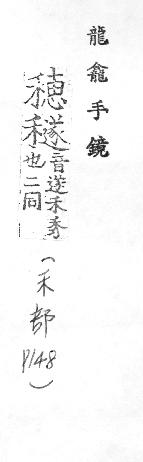 龍龕手鏡
穂穟音遂禾秀
也二同
(禾部
P148)